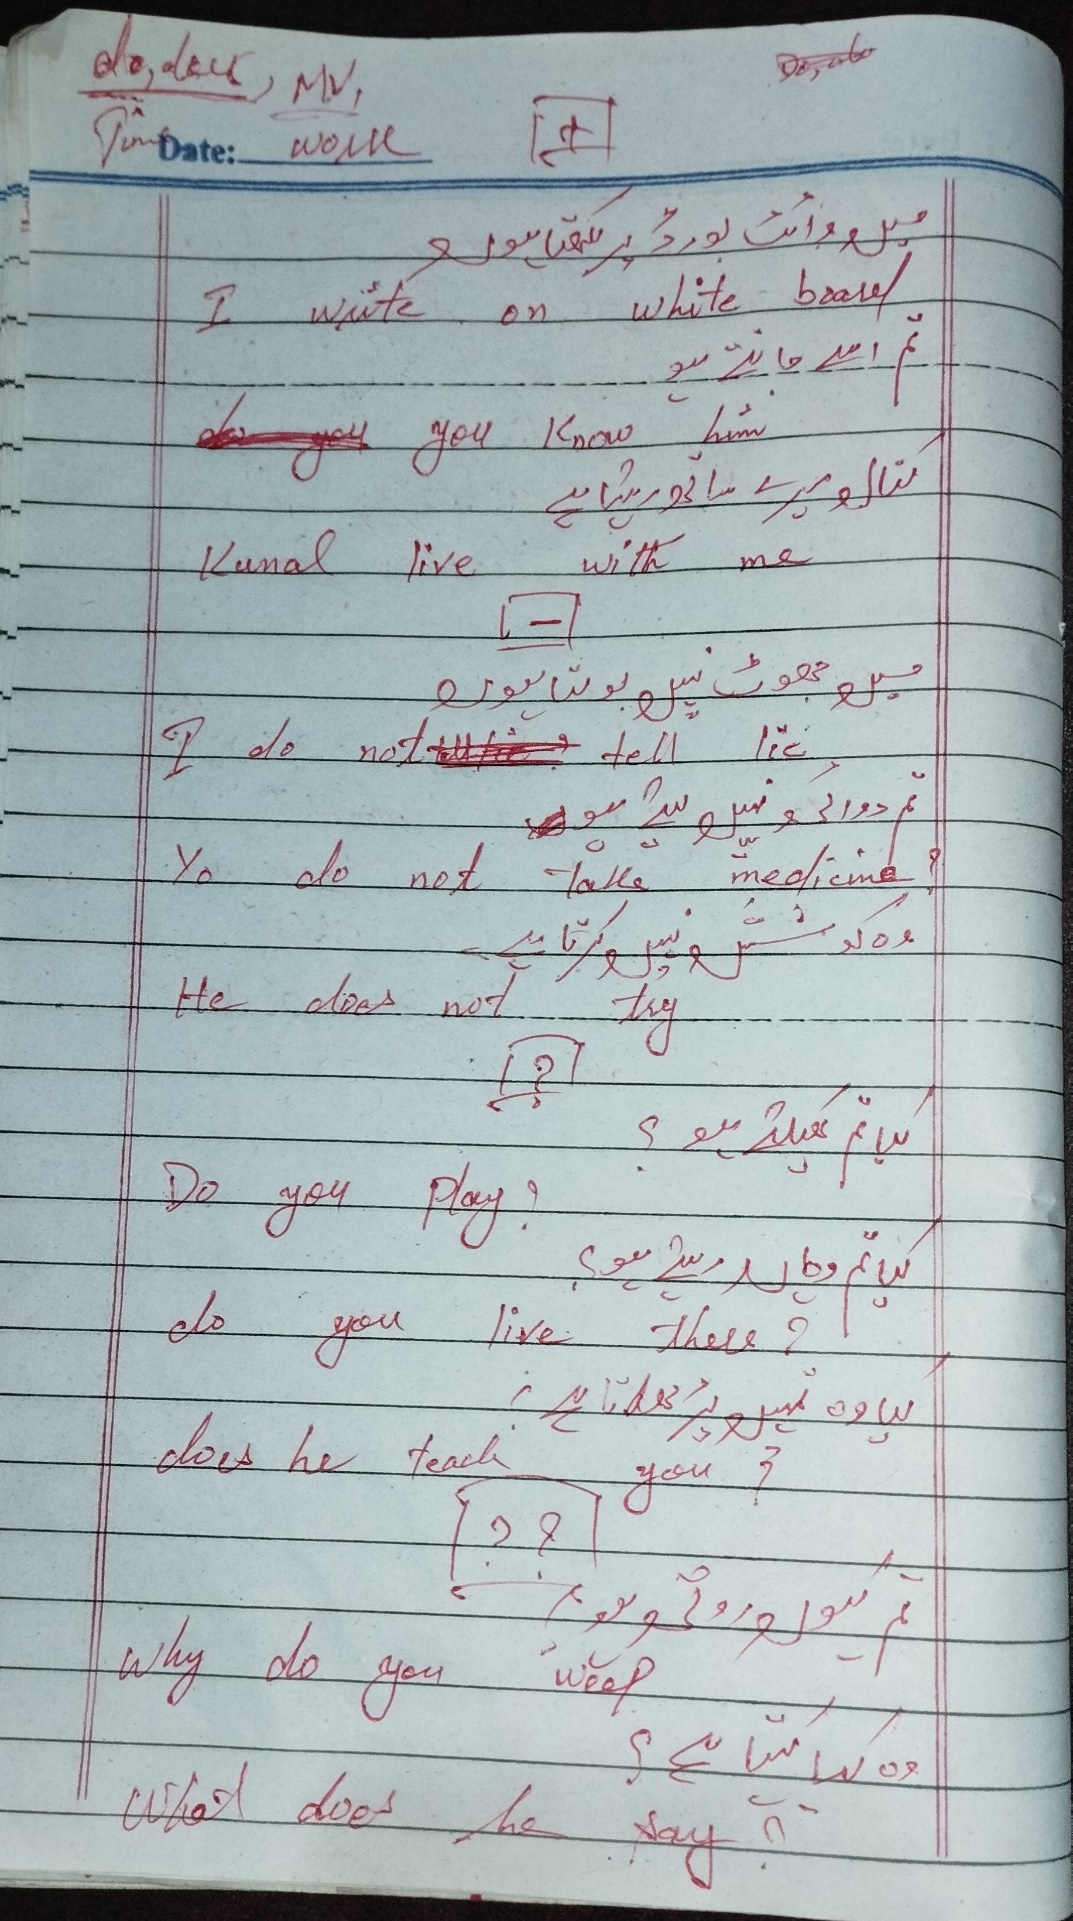 do, does, MV,
Time work
Date:
+
میں وائٹ بورڈ پر لکھتا ہوں
I write on white board
تم اسے جانتے ہو
you know him
کنال میرے ساتھ رہتا ہے
Kunal live with me
-
میں جھوٹ نہیں بولتا ہوں
I do not tell lie
تم دوائی نہیں لیتے ہو
Yo do not take medicine?
وہ کوشش نہیں کرتا ہے
He does not try
?
کیا تم کھیلتے ہو ؟
Do you play?
کیا تم وہاں رہتے ہو؟
do you live there?
کیا وہ تمہیں پڑھاتا ہے ؟
does he teach you ?
? ?
تم کیوں روتے ہو ؟
Why do you weep
وہ کیا کہتا ہے ؟
What does he say ?